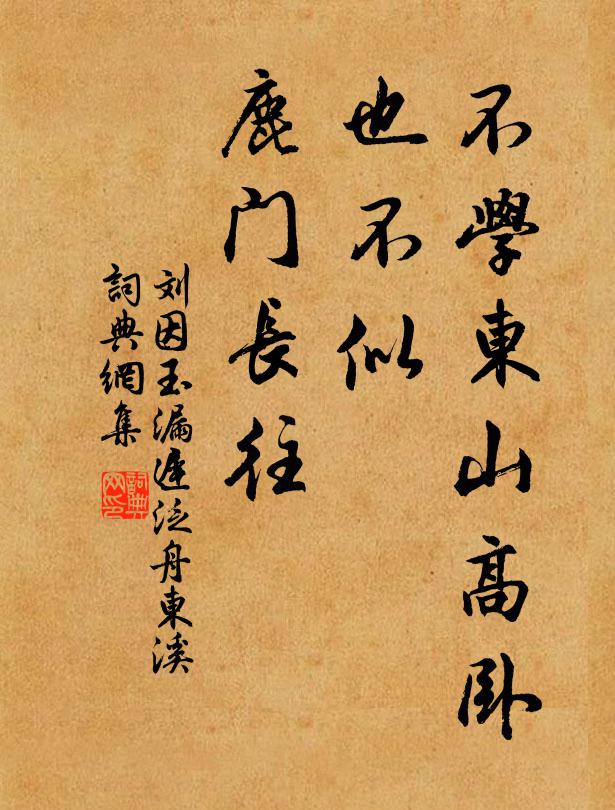 不學東山高卧
也不似
鹿门長往
刘因玉漏遲泛舟東溪
詞典網集
詞典网印